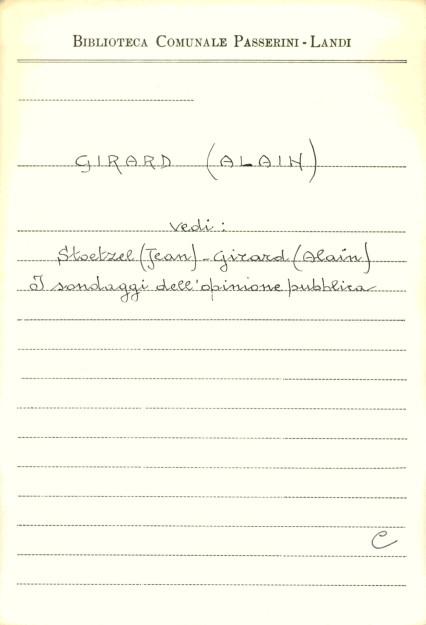 BIBLIOTECA COMUNALE PASSERINI - LANDI
GIRARD (ALAIN)
vedi:
Stoetzel (Jean) - Girard (Alain)
I sondaggi dell'opinione pubblica
C